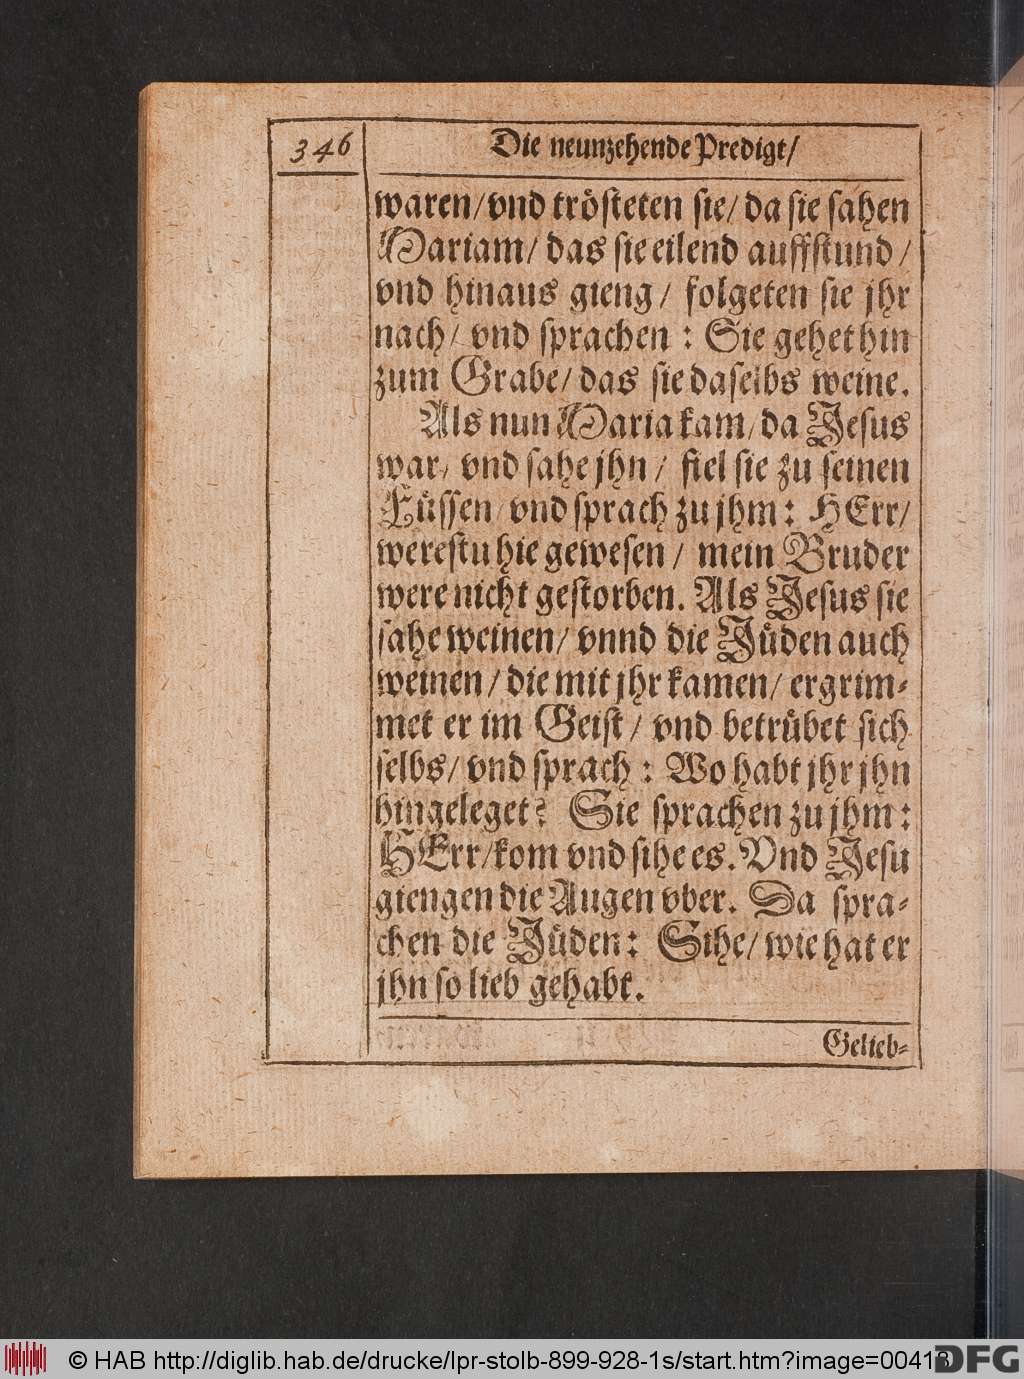 346
Die neunzehende Predigt/
waren/ vnd trösteten sie/ da sie sahen
Mariam/ das sie eilend auffstund/
vnd hinaus gieng/ folgeten sie jhr
nach/ vnd sprachen: Sie gehet hin
zum Grabe/ das sie daselbs weine.
Als nun Maria kam/ da Jesus
war/ vnd sahe jhn/ fiel sie zu seinen
Füssen/ vnd sprach zu jhm: HErr/
werestu hie gewesen/ mein Bruder
were nicht gestorben. Als Jesus sie
sahe weinen/ vnnd die Jüden auch
weinen/ die mit jhr kamen/ ergrim-
met er im Geist/ vnd betrübet sich
selbs/ vnd sprach: Wo habt jhr jhn
hingeleget? Sie sprachen zu jhm:
HErr/ kom vnd sihe es. Vnd Jesu
giengen die Augen vber. Da spra-
chen die Jüden: Sihe/ wie hat er
jhn so lieb gehabt.
Gelieb-
© HAB http://diglib.hab.de/drucke/lpr-stolb-899-928-1s/start.htm?image=00418
DFG